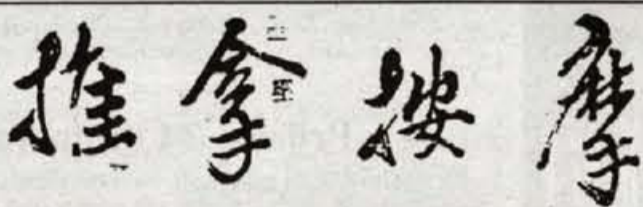 推拿按摩